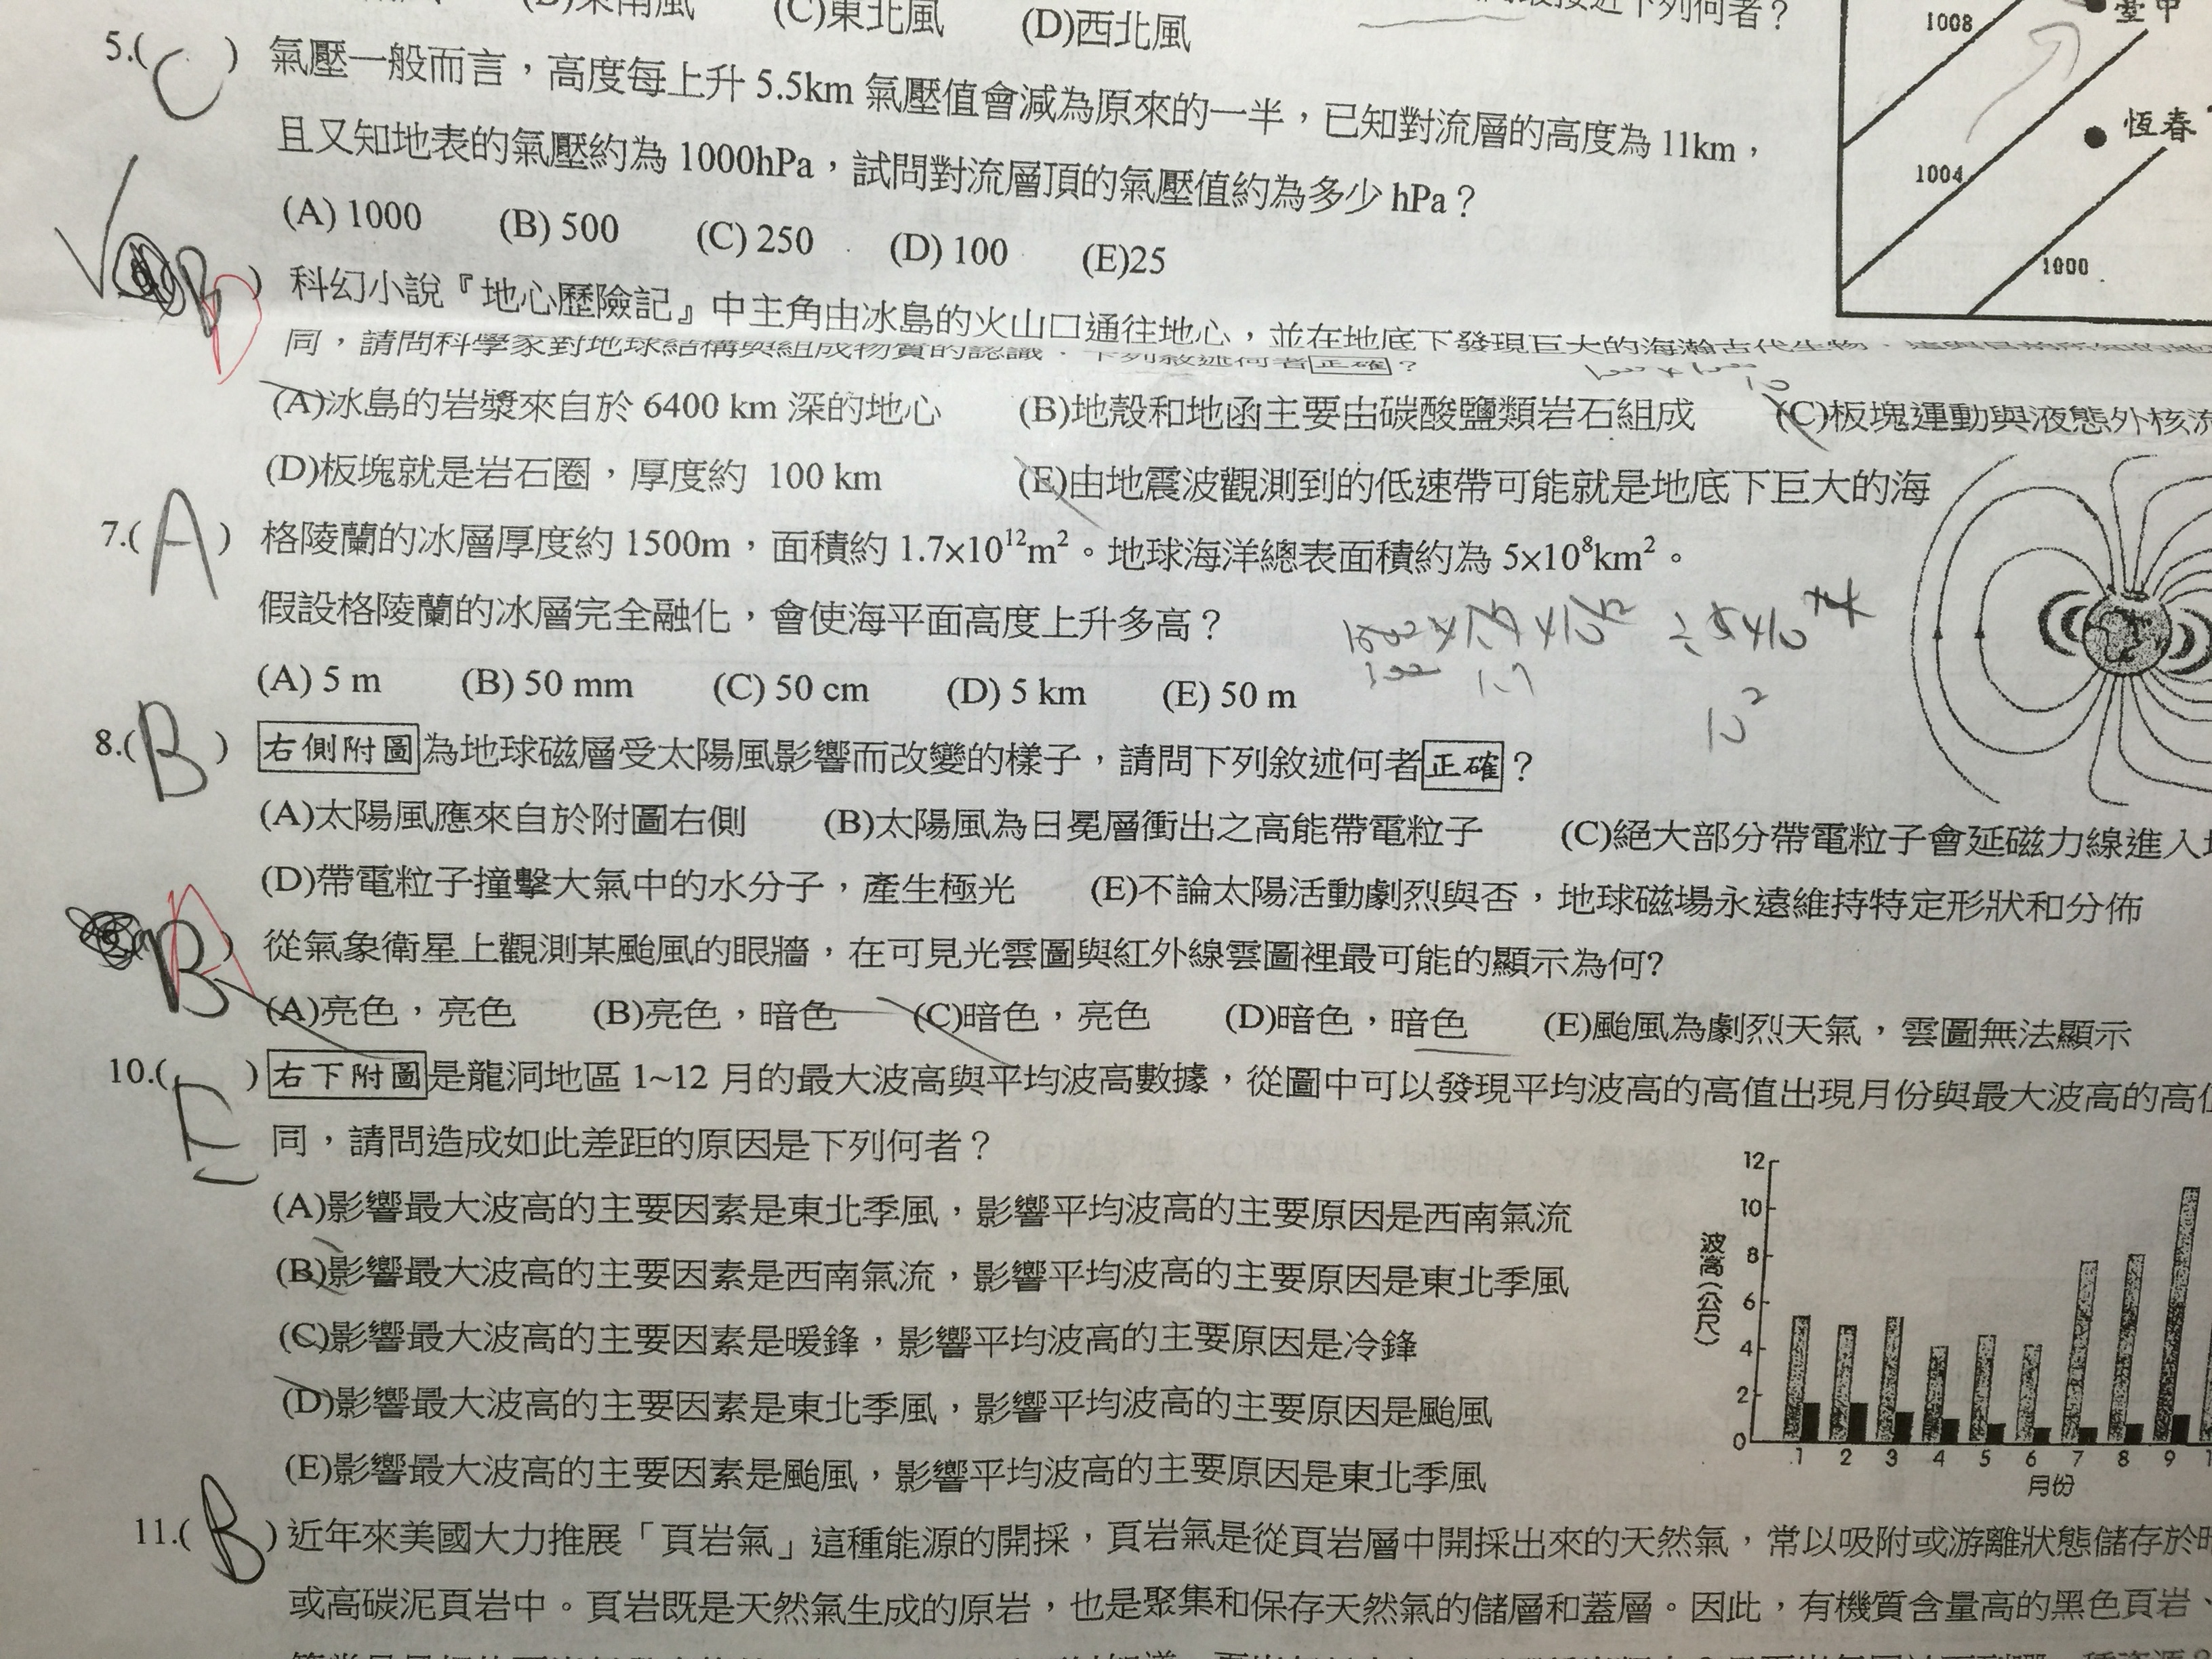 (C)東北風 (D)西北風 下列何者？
5.( C ) 氣壓一般而言，高度每上升 5.5km 氣壓值會減為原來的一半，已知對流層的高度為 11km，
且又知地表的氣壓約為 1000hPa，試問對流層頂的氣壓值約為多少 hPa？
(A) 1000 (B) 500 (C) 250 (D) 100 (E)25
1008
臺中
恆春
1004
1000
B ) 科幻小說『地心歷險記』中主角由冰島的火山口通往地心，並在地底下發現巨大的海瀚古代生物
同，請問科學家對地球結構與組成物質的認識，下列敘述何者正確？
(A)冰島的岩漿來自於 6400 km 深的地心 (B)地殼和地函主要由碳酸鹽類岩石組成 (C)板塊運動與液態外核流
(D)板塊就是岩石圈，厚度約 100 km (E)由地震波觀測到的低速帶可能就是地底下巨大的海
7.( A ) 格陵蘭的冰層厚度約 1500m，面積約 1.7×10¹²m²。地球海洋總表面積約為 5×10⁸km²。
假設格陵蘭的冰層完全融化，會使海平面高度上升多高？
(A) 5 m (B) 50 mm (C) 50 cm (D) 5 km (E) 50 m
1.7
10²
8.( B ) 右側附圖為地球磁層受太陽風影響而改變的樣子，請問下列敘述何者正確？
(A)太陽風應來自於附圖右側 (B)太陽風為日冕層衝出之高能帶電粒子 (C)絕大部分帶電粒子會延磁力線進入
(D)帶電粒子撞擊大氣中的水分子，產生極光 (E)不論太陽活動劇烈與否，地球磁場永遠維持特定形狀和分佈
B ) 從氣象衛星上觀測某颱風的眼牆，在可見光雲圖與紅外線雲圖裡最可能的顯示為何?
(A)亮色，亮色 (B)亮色，暗色 (C)暗色，亮色 (D)暗色，暗色 (E)颱風為劇烈天氣，雲圖無法顯示
10.( E ) 右下附圖是龍洞地區 1~12 月的最大波高與平均波高數據，從圖中可以發現平均波高的高值出現月份與最大波高的高值
同，請問造成如此差距的原因是下列何者？
(A)影響最大波高的主要因素是東北季風，影響平均波高的主要原因是西南氣流
(B)影響最大波高的主要因素是西南氣流，影響平均波高的主要原因是東北季風
(C)影響最大波高的主要因素是暖鋒，影響平均波高的主要原因是冷鋒
(D)影響最大波高的主要因素是東北季風，影響平均波高的主要原因是颱風
(E)影響最大波高的主要因素是颱風，影響平均波高的主要原因是東北季風
波高(公尺)
12
10
8
6
4
2
0
1 2 3 4 5 6 7 8 9
月份
11.( B ) 近年來美國大力推展「頁岩氣」這種能源的開採，頁岩氣是從頁岩層中開採出來的天然氣，常以吸附或游離狀態儲存於
或高碳泥頁岩中。頁岩既是天然氣生成的原岩，也是聚集和保存天然氣的儲層和蓋層。因此，有機質含量高的黑色頁岩、